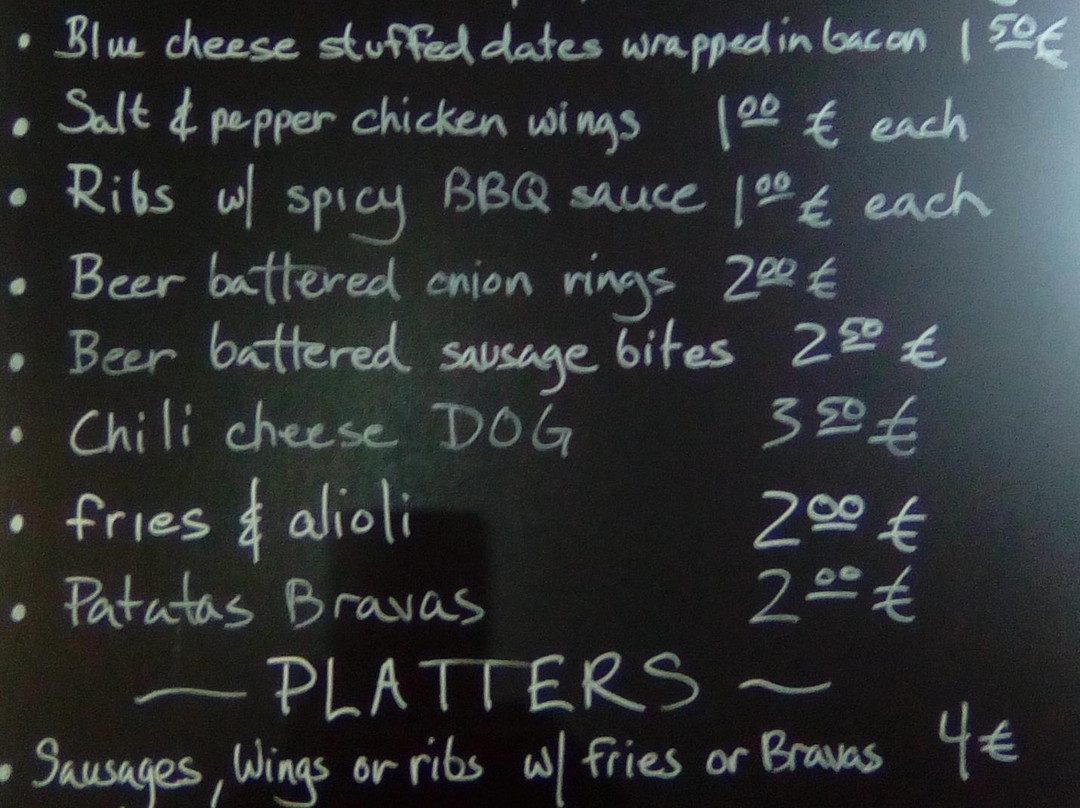 • Blue cheese stuffed dates wrapped in bacon 1 50 €
• Salt & pepper chicken wings 1 00 € each
• Ribs w/ spicy BBQ sauce 1 00 € each
• Beer battered onion rings 2 00 €
• Beer battered sausage bites 2 50 €
• Chili cheese DOG 3 50 €
• fries & alioli 2 00 €
• Patatas Bravas 2 00 €
— PLATTERS —
• Sausages, Wings or ribs w/ fries or Bravas 4 €